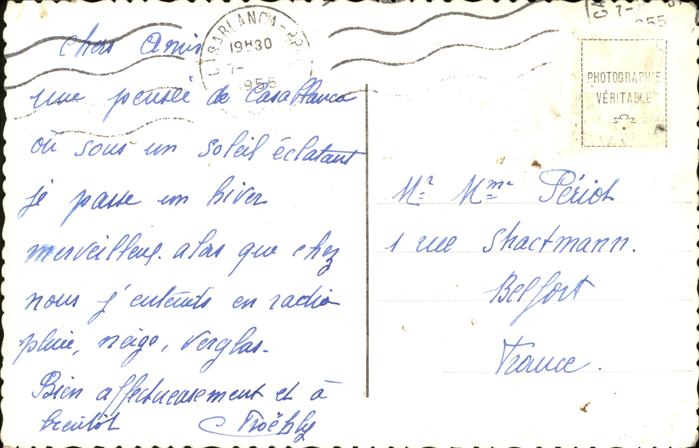 chers amis
une pensée de Casablanca
où sous un soleil éclatant
je passe un hiver
merveilleux. alas que chez
nous j'entends en radio
pluie, neige, verglas.
Bien affectueusement et à
bientôt
CASABLANCA-PP
19H30
7-
1955
7-
955
PHOTOGRAPHIE
VÉRITABLE
Mr Mme Périot
1 rue Shactmann.
Belfort
France.